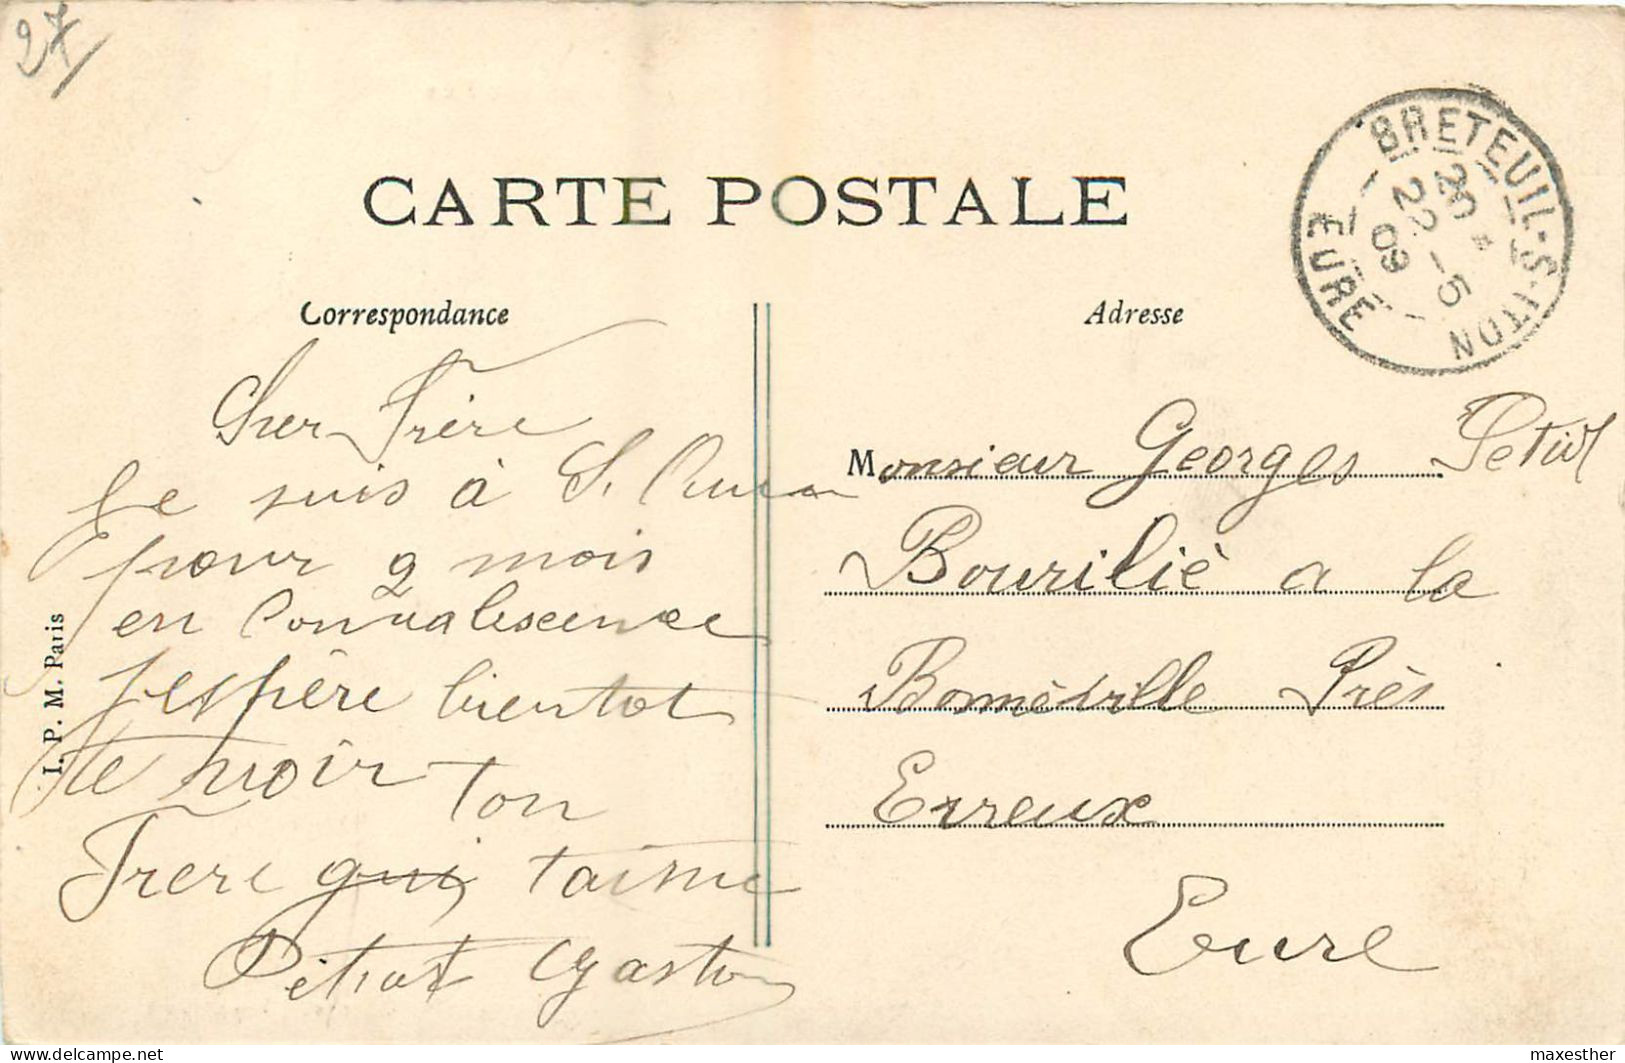 27
CARTE POSTALE
BRETEUIL-S-ITON
20 *
22 - 5
09
EURE
Correspondance
Adresse
Cher Frère
Je suis à S.
pour 2 mois
en Convalescence
J espère bientot
te voir ton
Frere qui taime
Gaston
I. P. M. Paris
Monsieur Georges
a la
Près
Evreux
Eure
delcampe.net
maxesther